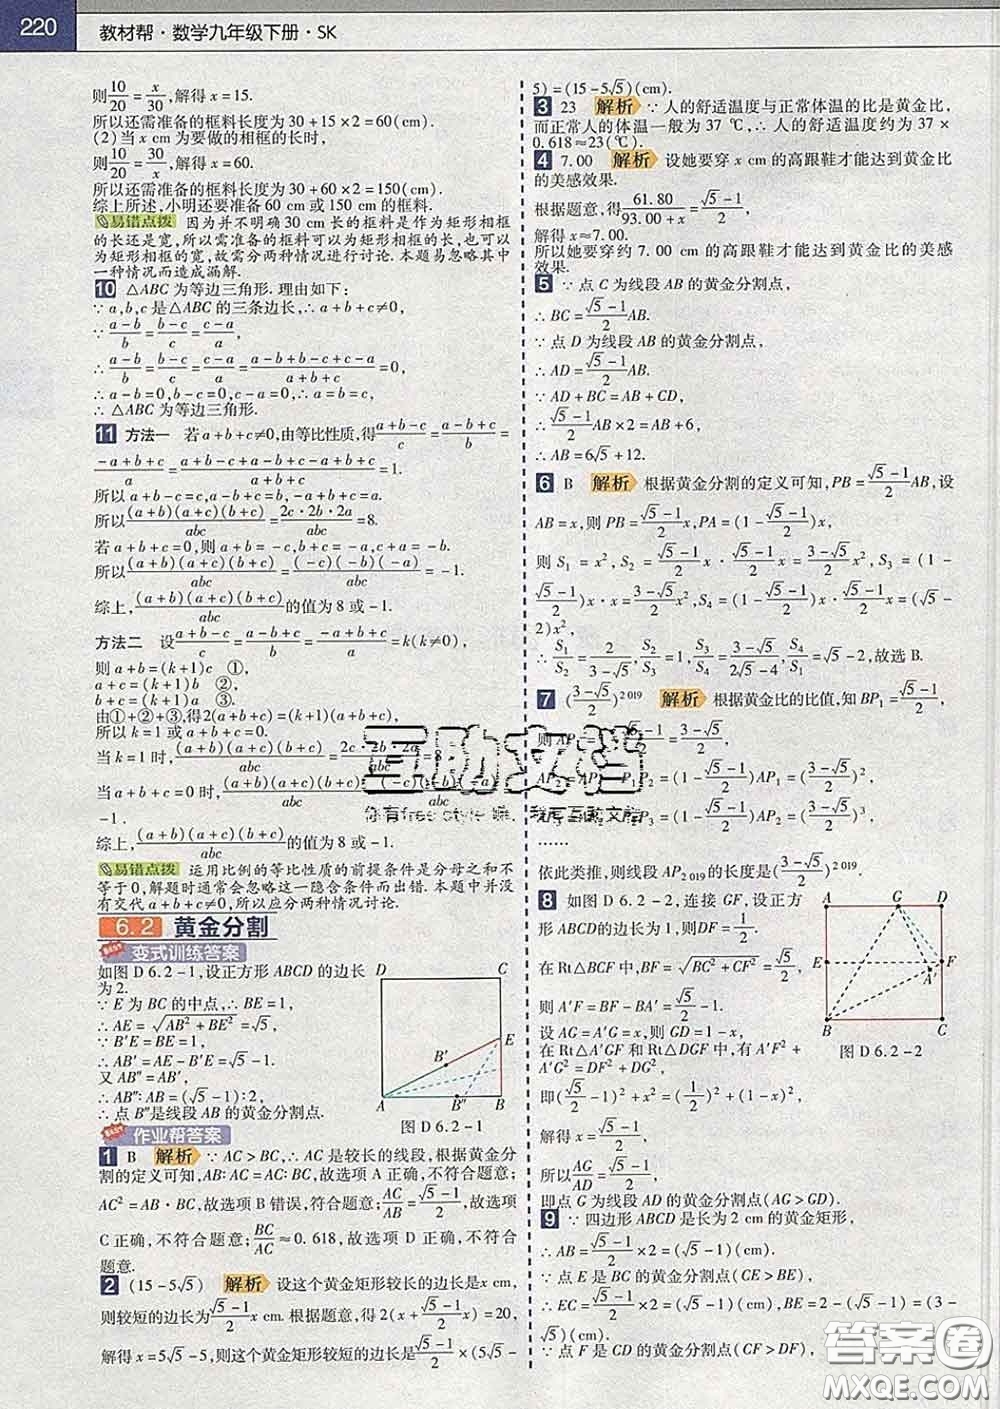 220 教材帮·数学九年级下册·SK
则10/20=x/30,解得 x=15.
所以还需准备的框料长度为 30+15×2=60(cm).
(2)当 x cm 为要做的相框的长时,
则10/20=30/x,解得 x=60.
所以还需准备的框料长度为 30+60×2=150(cm).
综上所述,小明还要准备 60 cm 或 150 cm 的框料.
易错点拨 因为并不明确30 cm 长的框料是作为矩形相框
的长还是宽,所以需准备的框料可以为矩形相框的长,也可以
为矩形相框的宽,故需分两种情况进行讨论. 本题易忽略其中
一种情况而造成漏解.
10 △ABC 为等边三角形. 理由如下:
∵ a,b,c 是△ABC 的三条边长,∴ a+b+c≠0.
∵ (a-b)/b=(b-c)/c=(c-a)/a,
∴ (a-b)/b=(b-c)/c=(c-a)/a=(a-b+b-c+c-a)/(a+b+c)=0,
∴ a-b=0,b-c=0,c-a=0,∴ a=b=c,
∴ △ABC 为等边三角形.
11 方法一 若 a+b+c≠0,由等比性质,得(a+b-c)/c=(a-b+c)/b=
(-a+b+c)/a=(a+b-c+a-b+c-a+b+c)/(a+b+c)=1.
所以 a+b-c=c,a-b+c=b,-a+b+c=a.
所以(a+b)(a+c)(b+c)/abc=2c·2b·2a/abc=8.
若 a+b+c=0,则 a+b=-c,b+c=-a,c+a=-b.
所以(a+b)(a+c)(b+c)/abc=(-c)(-b)(-a)/abc=-1.
综上,(a+b)(a+c)(b+c)/abc的值为 8 或-1.
方法二 设(a+b-c)/c=(a-b+c)/b=(-a+b+c)/a=k(k≠0),
则 a+b=(k+1)c ①,
a+c=(k+1)b ②,
b+c=(k+1)a ③.
由①+②+③,得2(a+b+c)=(k+1)(a+b+c),
所以 k=1 或 a+b+c=0.
当 k=1 时,(a+b)(a+c)(b+c)/abc=2c·2b·2a/abc=8
当 a+b+c=0 时,(a+b)(a+c)(b+c)/abc
-1.
综上,(a+b)(a+c)(b+c)/abc的值为 8 或-1.
易错点拨 运用比例的等比性质的前提条件是分母之和不
等于 0,解题时通常会忽略这一隐含条件而出错. 本题中并没
有交代 a+b+c≠0,所以应分两种情况讨论.
6.2 黄金分割
变式训练答案
如图 D 6.2-1,设正方形 ABCD 的边长
为 2.
∵ E 为 BC 的中点,∴ BE=1,
∴ AE=√(AB²+BE²)=√5,
∵ B′E=BE=1,
∴ AB′=AE-B′E=√5-1.
又 AB″=AB′,
∴ AB″:AB=(√5-1):2,
∴ 点 B″是线段 AB 的黄金分割点.
D C E B′ A B″ B
图 D 6.2-1
作业帮答案
1 B 解析 ∵ AC>BC,∴ AC 是较长的线段,根据黄金分
割的定义可知,AB:AC=AC:BC,故选项 A 正确,不符合题意;
AC²=AB·BC,故选项 B 错误,符合题意;AC/AB=(√5-1)/2,故选项
C 正确,不符合题意;BC/AC≈0.618,故选项 D 正确,不符合
题意.
2 (15-5√5) 解析 设这个黄金矩形较长的边长是x cm,
则较短的边长为(√5-1)/2 x cm. 根据题意,得 2(x+(√5-1)/2 x)=20,
解得 x=5√5-5,则这个黄金矩形较短的边长是(√5-1)/2×(5√5-
5)=(15-5√5)(cm).
3 23 解析 ∵ 人的舒适温度与正常体温的比是黄金比,
而正常人的体温一般为 37 ℃,∴ 人的舒适温度约为 37×
0.618≈23(℃).
4 7.00 解析 设她要穿 x cm 的高跟鞋才能达到黄金比
的美感效果.
根据题意,得61.80/(93.00+x)=(√5-1)/2,
解得 x≈7.00.
所以她要穿约 7.00 cm 的高跟鞋才能达到黄金比的美感
效果.
5 ∵ 点 C 为线段 AB 的黄金分割点,
∴ BC=(√5-1)/2 AB.
∵ 点 D 为线段 AB 的黄金分割点,
∴ AD=(√5-1)/2 AB.
∵ AD+BC=AB+CD,
∴ (√5-1)/2 AB×2=AB+6,
∴ AB=6√5+12.
6 B 解析 根据黄金分割的定义可知,PB=(√5-1)/2 AB,设
AB=x,则 PB=(√5-1)/2 x,PA=(1-(√5-1)/2)x,
则 S₁=x²,S₂=(√5-1)/2 x·(√5-1)/2 x=(3-√5)/2 x²,S₃=(1-
(√5-1)/2)x·x=(3-√5)/2 x²,S₄=(1-(√5-1)/2)x·(√5-1)/2 x=(√5-
2)x²,
∴ S₁/S₂=2/(3-√5),S₂/S₃=1,S₂/S₄=(3-√5)/(2√5-4),S₄/S₁=√5-2,故选 B.
7 ((3-√5)/2)²⁰¹⁹ 解析 根据黄金比的比值,知 BP₁=(√5-1)/2,
则 AP₁=1-(√5-1)/2=(3-√5)/2,
AP₂ P₁P₂=(1-(√5-1)/2)AP₁=((3-√5)/2)²,
P₂P₃=(1-(√5-1)/2)AP₂=((3-√5)/2)³,
……
依此类推,则线段 AP₂₀₁₉的长度是((3-√5)/2)²⁰¹⁹.
8 如图 D 6.2-2,连接 GF,设正方
形 ABCD的边长为 1,则DF=1/2.
在 Rt△BCF 中,BF=√(BC²+CF²)=√5/2,
则 A′F=BF-BA′=√5/2-1.
设 AG=A′G=x,则 GD=1-x,
在 Rt△A′GF 和 Rt△DGF 中,有 A′F²+
A′G²=DF²+DG²,
即(√5/2-1)²+x²=(1/2)²+(1-x)²,
解得 x=(√5-1)/2,
所以AG/AD=(√5-1)/2,
即点 G 为线段 AD 的黄金分割点(AG>GD).
A G D E F A′ B C
图 D 6.2-2
9 ∵ 四边形 ABCD 是长为 2 cm 的黄金矩形,
∴ AB=(√5-1)/2×2=(√5-1)(cm).
∵ 点 E 是 BC 的黄金分割点(CE>BE),
∴ EC=(√5-1)/2×2=(√5-1)(cm),BE=2-(√5-1)=(3-
√5)(cm).
∵ 点 F 是 CD 的黄金分割点(CF>DF),
互助文档
答案圈
MXQE.COM